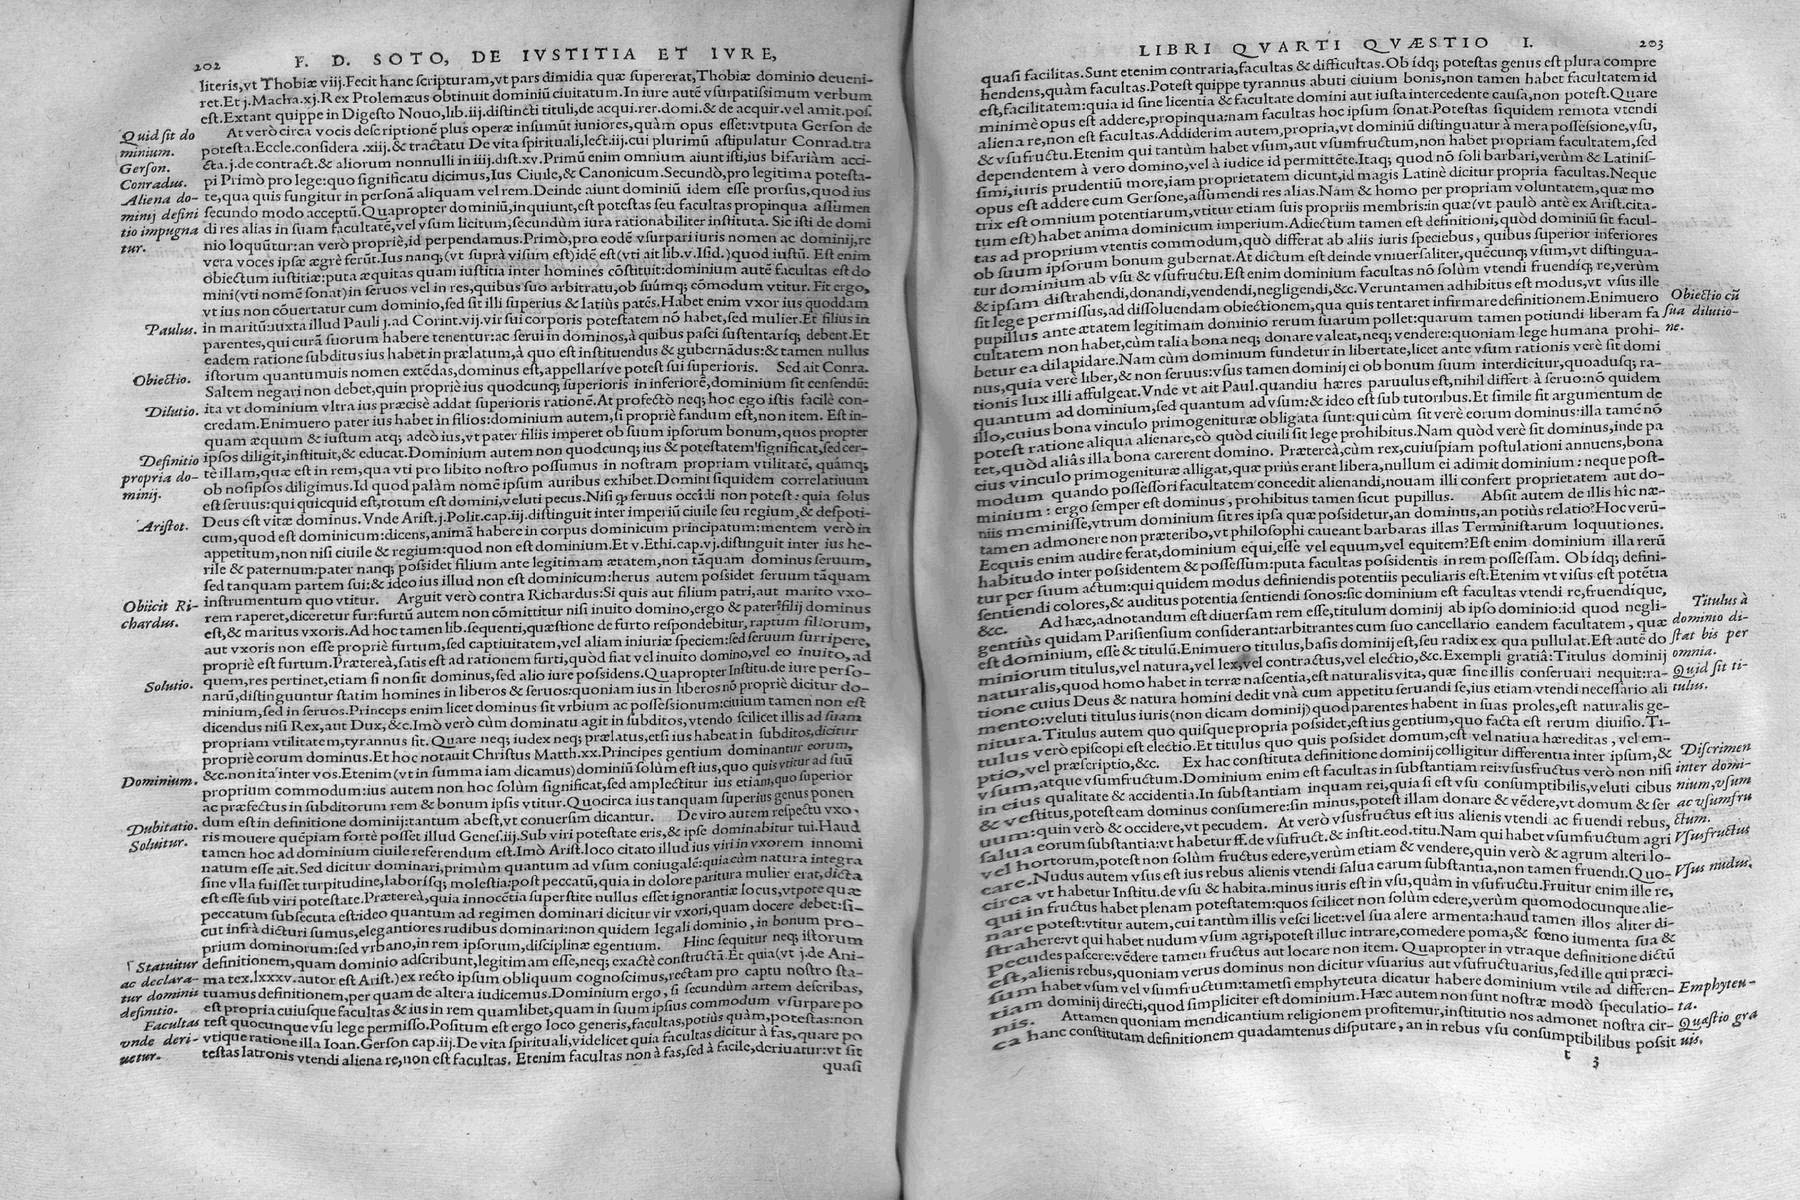 202 F. D. SOTO, DE IVSTITIA ET IVRE,
literis,vt Thobiæ viij.Fecit hanc ſcripturam,vt pars dimidia quæ ſupererat,Thobiæ dominio deueni-
ret.Et j.Macha.xj.Rex Ptolemæus obtinuit dominiũ ciuitatum.In iure autẽ vſurpatiſſimum verbum
eſt.Extant quippe in Digeſto Nouo,lib.iij.diſtincti tituli,de acqui.rer.domi.& de acquir.vel amit.poſ.
At verò circa vocis deſcriptionẽ plus operæ inſumũt iuniores,quàm opus eſſet:vtputa Gerſon de
poteſta.Eccle.conſidera .xiij.& tractatu De vita ſpirituali,lect.iij.cui plurimũ aſtipulatur Conrad.tra
cta.j.de contract.& aliorum nonnulli in iiij.diſt.xv.Primũ enim omnium aiunt iſti,ius bifariàm acci-
pi Primò pro lege:quo ſignificatu dicimus,Ius Ciuile,& Canonicum.Secundò,pro legitima poteſta-
te,qua quis fungitur in perſonã aliquam vel rem.Deinde aiunt dominiũ idem eſſe prorſus,quod ius
ſecundo modo acceptũ.Quapropter dominiũ,inquiunt,eſt poteſtas ſeu facultas propinqua aſſumen
di res alias in ſuam facultatẽ,vel vſum licitum,ſecundùm iura rationabiliter inſtituta. Sic iſti de domi
nio loquũtur:an verò propriè,id perpendamus.Primò,pro eodẽ vſurpari iuris nomen ac dominij,re
vera voces ipſæ ægrè ferũt.Ius nanq;(vt ſuprà viſum eſt)idẽ eſt(vti ait lib.v.Iſid.)quod iuſtũ. Eſt enim
obiectum iuſtitiæ:puta æquitas quam iuſtitia inter homines cõſtituit:dominium autẽ facultas eſt do
mini(vti nomẽ ſonat)in ſeruos vel in res,quibus ſuo arbitratu,ob ſuúmq; cõmodum vtitur. Fit ergo,
vt ius non cõuertatur cum dominio,ſed ſit illi ſuperius & latiùs patẽs.Habet enim vxor ius quoddam
in maritũ:iuxta illud Pauli j.ad Corint.vij.vir ſui corporis poteſtatem nõ habet,ſed mulier.Et filius in
parentes,qui curã ſuorum habere tenentur:ac ſerui in dominos,à quibus paſci ſuſtentariq; debent.Et
eadem ratione ſubditus ius habet in prælatum,à quo eſt inſtituendus & gubernãdus:& tamen nullus
iſtorum quantumuis nomen extẽdas,dominus eſt,appellariᵥe poteſt ſui ſuperioris. Sed ait Conra.
Saltem negari non debet,quin propriè ius quodcunq; ſuperioris in inferiorẽ,dominium ſit cenſendũ:
ita vt dominium vltra ius præcisè addat ſuperioris rationẽ.At profectò neq; hoc ego iſtis facilè con-
credam.Enimuero pater ius habet in filios:dominium autem,ſi propriè fandum eſt,non item. Eſt in-
quam æquum & iuſtum atq; adeò ius,vt pater filiis imperet ob ſuum ipſorum bonum,quos propter
ipſos diligit,inſtituit,& educat.Dominium autem non quodcunq; ius & poteſtatem ſignificat,ſed cer-
tè illam,quæ eſt in rem,qua vti pro libito noſtro poſſumus in noſtram propriam vtilitatẽ, quámq;
ob noſipſos diligimus.Id quod palàm nomẽ ipſum auribus exhibet.Domini ſiquidem correlatiuum
eſt ſeruus:qui quicquid eſt,totum eſt domini,veluti pecus.Niſi q̃ ſeruus occidi non poteſt: quia ſolus
Deus eſt vitæ dominus. Vnde Ariſt.j.Polit.cap.iij.diſtinguit inter imperiũ ciuile ſeu regium,& deſpoti-
cum,quod eſt dominicum:dicens,animã habere in corpus dominicum principatum:mentem verò in
appetitum,non niſi ciuile & regium:quod non eſt dominium.Et v.Ethi.cap.vj.diſtinguit inter ius he-
rile & paternum:pater nanq; poſſidet filium ante legitimam ætatem,non tãquam dominus ſeruum,
ſed tanquam partem ſui:& ideo ius illud non eſt dominicum:herus autem poſſidet ſeruum tãquam
inſtrumentum quo vtitur. Arguit verò contra Richardus:Si quis aut filium patri,aut marito vxo-
rem raperet,diceretur fur:furtũ autem non cõmittitur niſi inuito domino,ergo & pater filij dominus
eſt,& maritus vxoris.Ad hoc tamen lib.ſequenti,quæſtione de furto reſpondebitur,raptum filiorum,
aut vxoris non eſſe propriè furtum,ſed captiuitatem,vel aliam iniuriæ ſpeciem:ſed ſeruum ſurripere,
propriè eſt furtum.Prætereà,ſatis eſt ad rationem furti,quòd fiat vel inuito domino,vel eo inuito,ad
quem,res pertinet,etiam ſi non ſit dominus,ſed alio iure poſſidens.Quapropter Inſtitu.de iure perſo-
narũ,diſtinguuntur ſtatim homines in liberos & ſeruos:quoniam ius in liberos nõ propriè dicitur do-
minium,ſed in ſeruos.Princeps enim licet dominus ſit vrbium ac poſſeſſionum:ciuium tamen non eſt
dicendus niſi Rex,aut Dux,&c.Imò verò cùm dominatu agit in ſubditos,vtendo ſcilicet illis ad ſuam
propriam vtilitatem,tyrannus fit. Quare neq; iudex neq; prælatus,etſi ius habeat in ſubditos,dicitur
propriè eorum dominus.Et hoc notauit Chriſtus Matth.xx.Principes gentium dominantur eorum,
&c.non ita inter vos.Etenim(vt in ſumma iam dicamus)dominiũ ſolùm eſt ius,quo quis vtitur ad ſuũ
proprium commodum:ius autem non hoc ſolùm ſignificat,ſed amplectitur ius etiam,quo ſuperior
ac præfectus in ſubditorum rem & bonum ipſis vtitur.Quocirca ius tanquam ſuperius genus ponen
dum eſt in definitione dominij:tantum abeſt,vt conuerſim dicantur. De viro autem reſpectu vxo-
ris mouere quẽpiam fortè poſſet illud Geneſ.iij.Sub viri poteſtate eris,& ipſe dominabitur tui.Haud
tamen hoc ad dominium ciuile referendum eſt.Imò Ariſt.loco citato illud ius viri in vxorem innomi
natum eſſe ait.Sed dicitur dominari,primùm quantum ad vſum coniugalẽ:quiacùm natura integra
ſine vlla fuiſſet turpitudine,laboriſq; moleſtia:poſt peccatũ,quia in dolore paritura mulier erat,dicta
eſt eſſe ſub viri poteſtate.Prætereà,quia innocẽtia ſuperſtite nullus eſſet ignorantiæ locus,vtpote quæ
peccatum ſubſecuta eſt:ideo quantum ad regimen dominari dicitur vir vxori,quam docere debet:ſi-
cut infrà dicturi ſumus,elegantiores rudibus dominari:non quidem legali dominio, in bonum pro-
prium dominorum:ſed vrbano,in rem ipſorum,diſciplinæ egentium. Hinc ſequitur neq; iſtorum
definitionem,quam dominio adſcribunt,legitimam eſſe,neq; exactè conſtructã.Et quia(vt j.de Ani-
ma tex.lxxxv.autor eſt Ariſt.)ex recto ipſum obliquum cognoſcimus,rectam pro captu noſtro ſta-
tuamus definitionem,per quam de altera iudicemus.Dominium ergo, ſi ſecundùm artem deſcribas,
eſt propria cuiuſque facultas & ius in rem quamlibet,quam in ſuum ipſius commodum vſurpare po
teſt quocunque vſu lege permiſſo.Poſitum eſt ergo loco generis,facultas,potiùs quàm,poteſtas:non
vtique ratione illa Ioan.Gerſon cap.iij.De vita ſpirituali,videlicet quia facultas dicitur à fas,quare po
teſtas latronis vtendi aliena re,non eſt facultas. Etenim facultas non à fas,ſed à facile,deriuatur:vt ſit
quaſi
Quid ſit do
minium.
Gerſon.
Conradus.
Aliena do-
minij defini
tio impugna
tur.
Paulus.
Obiectio.
Dilutio.
Definitio
propria do-
minij.
Ariſtot.
Obiicit Ri-
chardus.
Solutio.
Dominium.
Dubitatio.
Soluitur.
Statuitur
ac declara-
tur dominii
definitio.
Facultas
vnde deri-
uetur.
LIBRI QVARTI QVÆSTIO I. 203
quaſi facilitas.Sunt etenim contraria,facultas & difficultas.Ob idq; poteſtas genus eſt plura compre
hendens,quàm facultas.Poteſt quippe tyrannus abuti ciuium bonis,non tamen habet facultatem id
eſt,facilitatem:quia id ſine licentia & facultate domini aut iuſta intercedente cauſa,non poteſt.Quare
minimè opus eſt addere,propinqua:nam facultas hoc ipſum ſonat.Poteſtas ſiquidem remota vtendi
aliena re,non eſt facultas.Addiderim autem,propria,vt dominiũ diſtinguatur à mera poſſeſſione,vſu,
& vſufructu.Etenim qui tantùm habet vſum,aut vſumfructum,non habet propriam facultatem,ſed
dependentem à vero domino,vel à iudice id permittẽte.Itaq; quod nõ ſoli barbari,verùm & Latiniſ-
ſimi,iuris prudentiũ more,iam proprietatem dicunt,id magis Latinè dicitur propria facultas.Neque
opus eſt addere cum Gerſone,aſſumendi res alias.Nam & homo per propriam voluntatem,quæ mo
trix eſt omnium potentiarum,vtitur etiam ſuis propriis membris:in quæ(vt paulò antè ex Ariſt.cita-
tum eſt)habet anima dominicum imperium.Adiectum tamen eſt definitioni,quòd dominiũ ſit facul-
tas ad proprium vtentis commodum,quò differat ab aliis iuris ſpeciebus, quibus ſuperior inferiores
ob ſuum ipſorum bonum gubernat.At dictum eſt deinde vniuerſaliter,quẽcunq; vſum,vt diſtingua-
tur dominium ab vſu & vſufructu.Eſt enim dominium facultas nõ ſolùm vtendi fruendiq; re,verùm
& ipſam diſtrahendi,donandi,vendendi,negligendi,&c.Veruntamen adhibitus eſt modus,vt vſus ille
ſit lege permiſſus,ad diſſoluendam obiectionem,qua quis tentaret infirmare definitionem.Enimuero
pupillus ante ætatem legitimam dominio rerum ſuarum pollet:quarum tamen potiundi liberam fa
cultatem non habet,cùm talia bona neq; donare valeat,neq; vendere:quoniam lege humana prohi-
betur ea dilapidare.Nam cùm dominium fundetur in libertate,licet ante vſum rationis verè ſit domi
nus,quia verè liber,& non ſeruus:vſus tamen dominij ei ob bonum ſuum interdicitur,quoaduſq; ra-
tionis lux illi affulgeat.Vnde vt ait Paul.quandiu hæres paruulus eſt,nihil differt à ſeruo:nõ quidem
quantum ad dominium,ſed quantum ad vſum:& ideo eſt ſub tutoribus.Et ſimile fit argumentum de
illo,cuius bona vinculo primogenituræ obligata ſunt:qui cùm ſit verè eorum dominus:illa tamẽ nõ
poteſt ratione aliqua alienare,eò quòd ciuili ſit lege prohibitus.Nam quòd verè ſit dominus,inde pa
tet,quòd aliâs illa bona carerent domino. Prætereà,cùm rex,cuiuſpiam poſtulationi annuens,bona
eius vinculo primogenituræ alligat,quæ priùs erant libera,nullum ei adimit dominium : neque poſt-
modum quando poſſeſſori facultatem concedit alienandi,nouam illi confert proprietatem aut do-
minium : ergo ſemper eſt dominus, prohibitus tamen ſicut pupillus. Abſit autem de illis hîc næ-
niis meminiſſe,vtrum dominium ſit res ipſa quæ poſſidetur,an dominus,an potiùs relatio?Hoc verũ-
tamen admonere non præteribo,vt philoſophi caueant barbaras illas Terminiſtarum loquutiones.
Ecquis enim audire ferat,dominium equi,eſſe vel equum,vel equitem?Eſt enim dominium illa rerũ
habitudo inter poſſidentem & poſſeſſum:puta facultas poſſidentis in rem poſſeſſam. Ob idq; defini-
tur per ſuum actum:qui quidem modus definiendis potentiis peculiaris eſt.Etenim vt viſus eſt potẽtia
ſentiendi colores,& auditus potentia ſentiendi ſonos:ſic dominium eſt facultas vtendi re,fruendique,
&c. Ad hæc,adnotandum eſt diuerſam rem eſſe,titulum dominij ab ipſo dominio:id quod negli-
gentiùs quidam Pariſienſium conſiderant:arbitrantes cum ſuo cancellario eandem facultatem, quæ
eſt dominium, eſſe & titulũ.Enimuero titulus,baſis dominij eſt,ſeu radix ex qua pullulat.Eſt autẽ do
miniorum titulus,vel natura,vel lex,vel contractus,vel electio,&c.Exempli gratiâ:Titulus dominij
naturalis,quod homo habet in terræ naſcentia,eſt naturalis vita, quæ ſine illis conſeruari nequit:ra-
tione cuius Deus & natura homini dedit vnà cum appetitu ſeruandi ſe,ius etiam vtendi neceſſario ali
mento:veluti titulus iuris(non dicam dominij)quod parentes habent in ſuas proles,eſt naturalis ge-
nitura.Titulus autem quo quiſque propria poſſidet,eſt ius gentium,quo facta eſt rerum diuiſio.Ti-
tulus verò epiſcopi eſt electio.Et titulus quo quis poſſidet domum,eſt vel natiua hæreditas, vel em-
ptio,vel præſcriptio,&c. Ex hac conſtituta definitione dominij colligitur differentia inter ipſum,&
vſum,atque vſumfructum.Dominium enim eſt facultas in ſubſtantiam rei:vſusfructus verò non niſi
in eius qualitate & accidentia.In ſubſtantiam inquam rei,quia ſi eſt vſu conſumptibilis,veluti cibus
& veſtitus,poteſt eam dominus conſumere:ſin minus,poteſt illam donare & vẽdere,vt domum & ſer
uum:quin verò & occidere,vt pecudem. At verò vſusfructus eſt ius alienis vtendi ac fruendi rebus,
ſalua eorum ſubſtantia:vt habetur ff.de vſufruct.& inſtit.eod.titu.Nam qui habet vſumfructum agri
vel hortorum,poteſt non ſolùm fructus edere,verùm etiam & vendere,quin verò & agrum alteri lo-
care.Nudus autem vſus eſt ius rebus alienis vtendi ſalua earum ſubſtantia,non tamen fruendi.Quo-
circa vt habetur Inſtitu.de vſu & habita.minus iuris eſt in vſu,quàm in vſufructu.Fruitur enim ille re,
qui in fructus habet plenam poteſtatem:quos ſcilicet non ſolùm edere,verùm quomodocunque alie-
nare poteſt:vtitur autem,cui tantùm illis veſci licet:vel ſua alere armenta:haud tamen illos aliter di-
ſtrahere:vt qui habet nudum vſum agri,poteſt illuc intrare,comedere poma,& fœno iumenta ſua &
pecudes paſcere:vẽdere tamen fructus aut locare non item. Quapropter in vtraque definitione dictũ
eſt,alienis rebus,quoniam verus dominus non dicitur vſuarius aut vſufructuarius,ſed ille qui præci-
ſum habet vſum vel vſumfructum:tametſi emphyteuta dicatur habere dominium vtile ad differen-
tiam dominij directi,quod ſimpliciter eſt dominium.Hæc autem non ſunt noſtræ modò ſpeculatio-
nis. Attamen quoniam mendicantium religionem profitemur,inſtitutio nos admonet noſtra cir-
ca hanc conſtitutam definitionem quadamtenus diſputare, an in rebus vſu conſumptibilibus poſſit
t 3
Obiectio cũ
ſua dilutio-
ne.
Titulus à
dominio di-
ſtat bis per
omnia.
Quid ſit ti-
tulus.
Diſcrimen
inter domi-
nium,vſum
ac vſumfru
ctum.
Vſusfructus
Vſus nudus.
Emphyteu-
ta.
Quæſtio gra
uis.